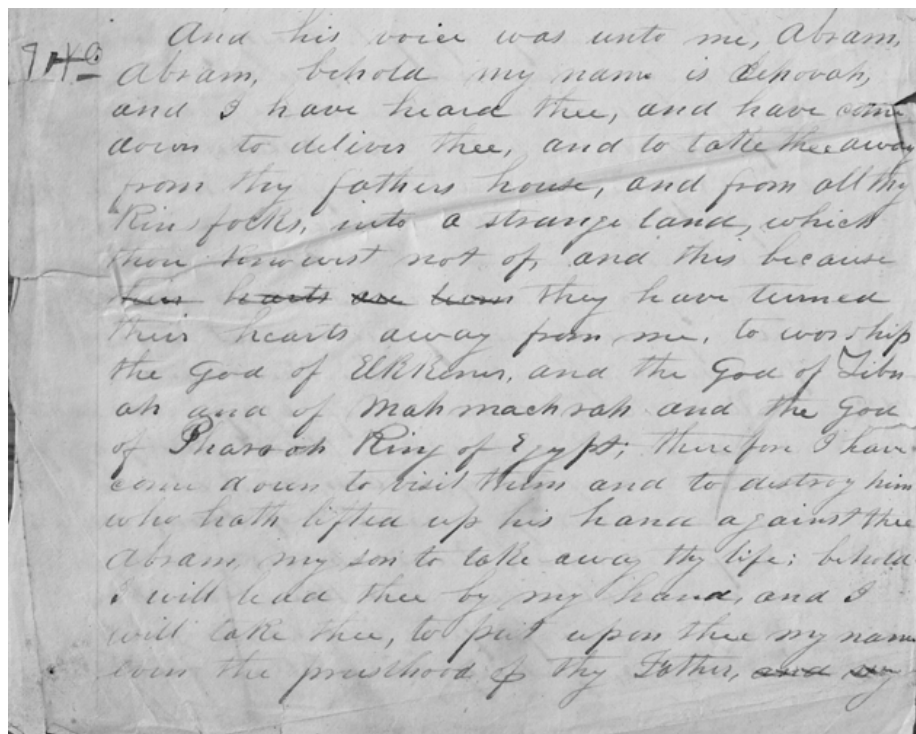 And his voice was unto me, Abram,
Abram, behold my name is Jehovah,
and I have heard thee, and have come
down to deliver thee, and to take thee away
from thy fathers house, and from all thy
Kinsfolks, into a strange land, which
thou knowest not of, and this because
their hearts are turn they have turned
their hearts away from me, to worship
the God of Elkkener, and the God of Zibn
ah and of Mahmachrah and the God
of Pharaoh King of Egypt; therefore I have
come down to visit them and to destroy him
who hath lifted up his hand against thee
Abram, my son to take away thy life: behold
I will lead thee by my hand, and I
will take thee, to put upon thee my name
even the priesthood of thy Father, and my